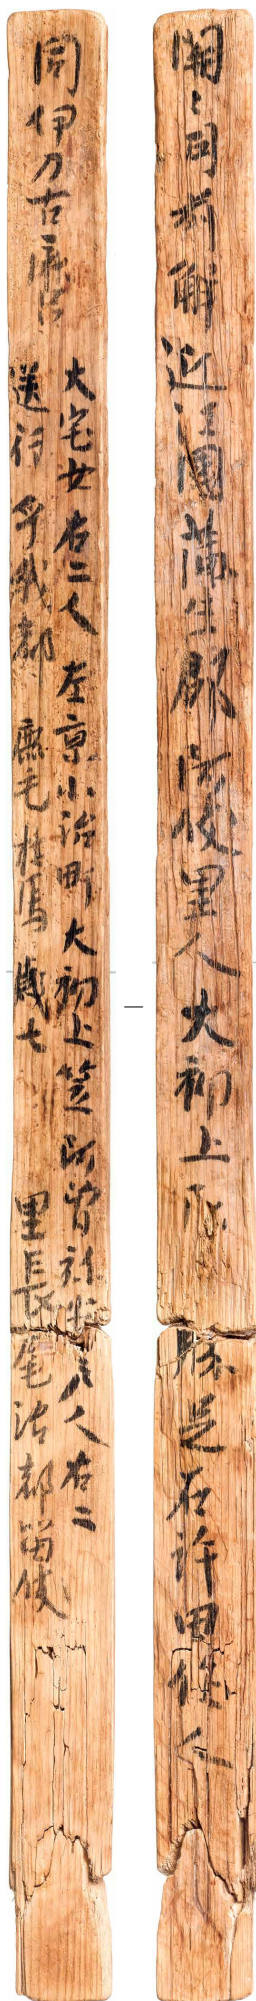 関々司前解近江国蒲生郡阿伎里人大初上阿□勝足石許田作人
同伊刀古麻呂
大宅女右二人左京小治町大初上笠阿曽弥安戸人右二
送行乎我都 鹿毛牡馬歳七 里長尾治都留伎